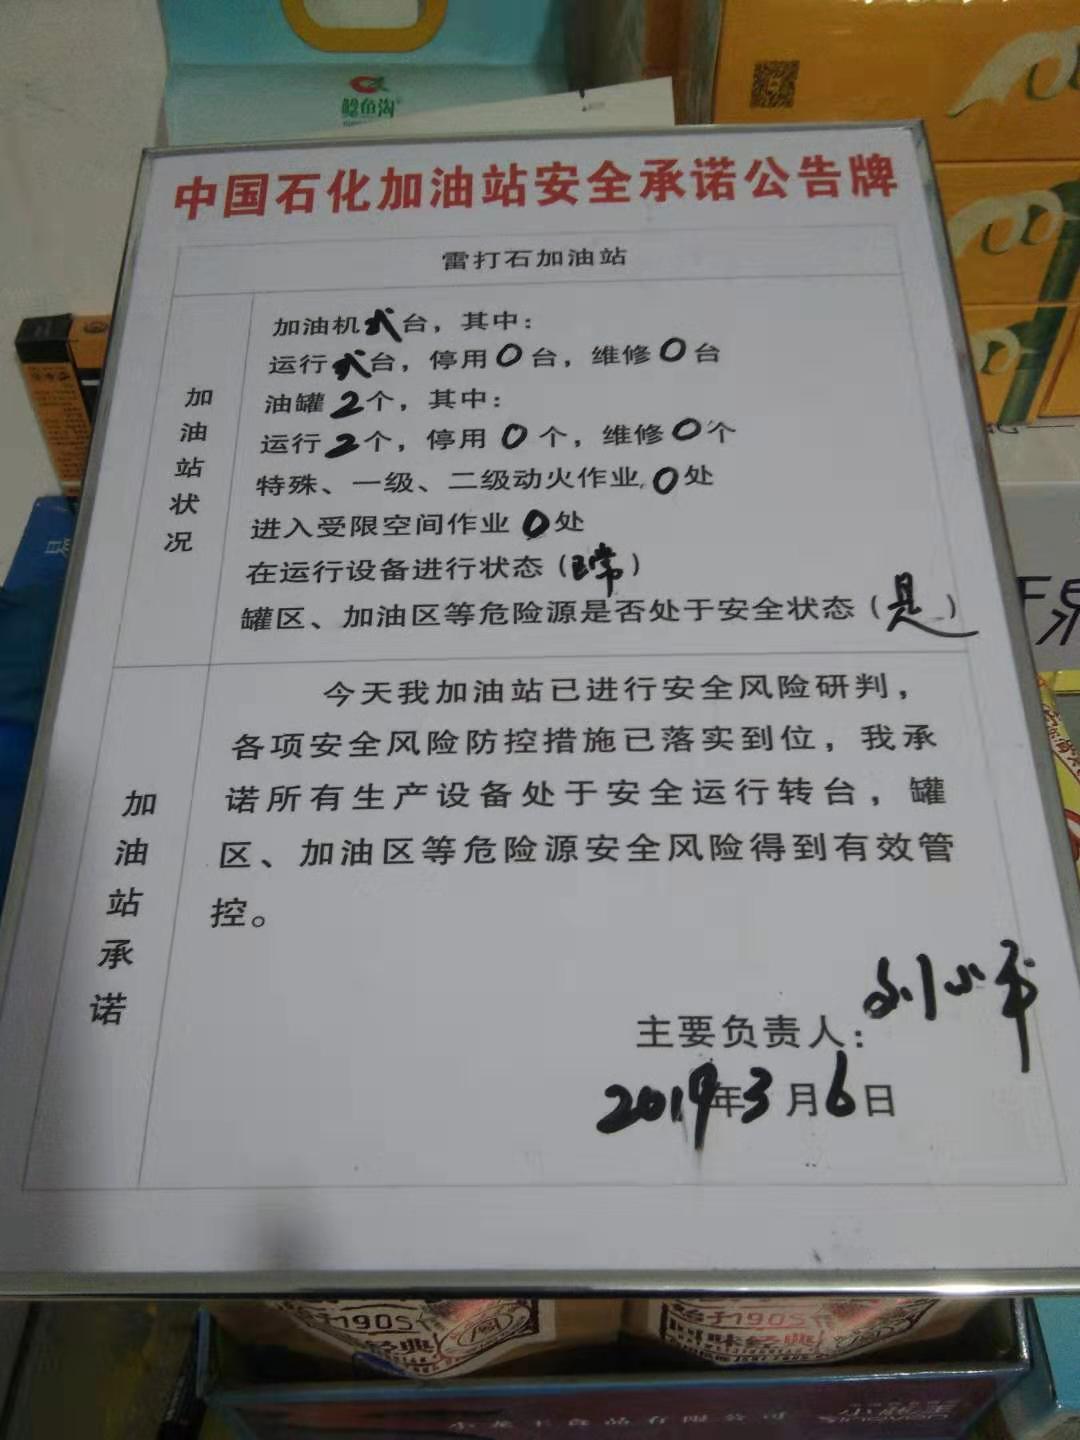 鲶鱼沟
中国石化加油站安全承诺公告牌
雷打石加油站
加油站状况
加油机 台，其中：
运行 台，停用0台，维修0台
油罐2个，其中：
运行2个，停用0个，维修0个
特殊、一级、二级动火作业0处
进入受限空间作业0处
在运行设备进行状态（正常）
罐区、加油区等危险源是否处于安全状态（是）
加油站承诺
今天我加油站已进行安全风险研判，
各项安全风险防控措施已落实到位，我承
诺所有生产设备处于安全运行转台，罐
区、加油区等危险源安全风险得到有效管
控。
主要负责人：刘小平
2019年3月6日
始于1905
经典
始于1905